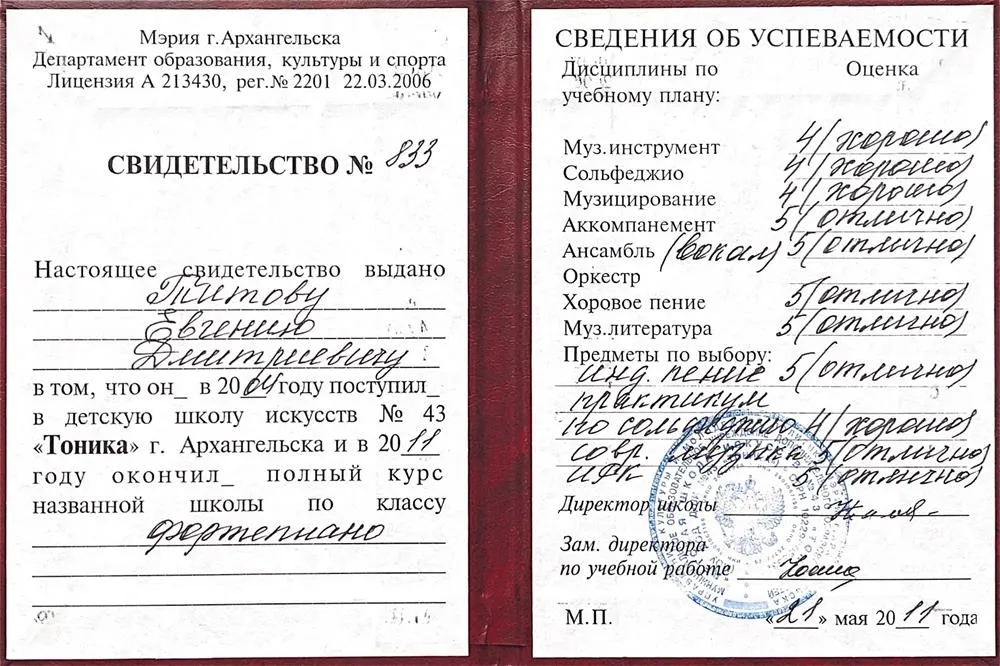 Мэрия г.Архангельска
Департамент образования, культуры и спорта
Лицензия А 213430, рег.№ 2201 22.03.2006
СВИДЕТЕЛЬСТВО № 833
Настоящее свидетельство выдано
Титову
Евгению
Дмитриевичу
в том, что он_ в 2004 году поступил_
в детскую школу искусств № 43
«Тоника» г. Архангельска и в 2011
году окончил_ полный курс
названной школы по классу
фортепиано
СВЕДЕНИЯ ОБ УСПЕВАЕМОСТИ
Дисциплины по учебному плану: Оценка
Муз.инструмент 4 (хорошо)
Сольфеджио 4 (хорошо)
Музицирование 4 (хорошо)
Аккомпанемент 5 (отлично)
Ансамбль (вокал) 5 (отлично)
Оркестр
Хоровое пение 5 (отлично)
Муз.литература 5 (отлично)
Предметы по выбору:
инд. пение 5 (отлично)
практикум
по сольфеджио 4 (хорошо)
совр. музыка 5 (отлично)
ИЗК 5 (отлично)
Директор школы
Зам. директора
по учебной работе
М.П. «21» мая 2011 года